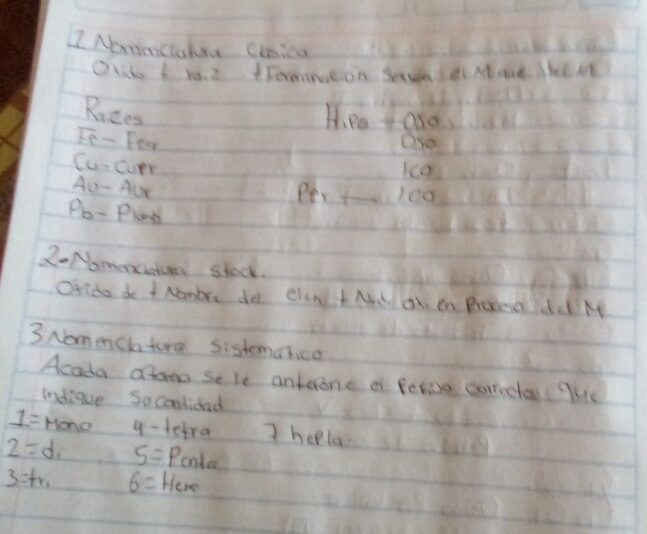 1 Nomenclatura Clasica
Oxido + raiz + Terminacion Segun el M
Raices Hipo - Oso
Fe - Ferr Oso
Cu - Cupr ico
Au - Aur Per - ico
Pb - Plumb
2- Nomenclatura stock.
Oxido de + Nombre del elem + ox. en del M
3 Nomenclatura sistematico
Acada atomo se le antepone el correcto que
indique Su cantidad
1 = Mono 4 - tetra 7 hepta
2 = di 5 = Penta
3 = tri 6 = Hexa